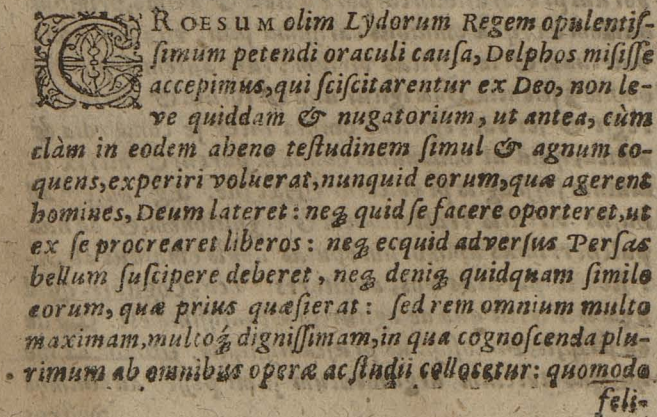 CROESUM olim Lydorum Regem opulentiſ-
ſimum petendi oraculi cauſa, Delphos miſiſſe
accepimus, qui ſciſcitarentur ex Deo, non le-
ve quiddam & nugatorium, ut antea, cùm
clàm in eodem aheno teſtudinem ſimul & agnum co-
quens, experiri voluerat, nunquid eorum, quæ agerent
homines, Deum lateret: neq; quid ſe facere oporteret, ut
ex ſe procrearet liberos: neq; ecquid adverſus Perſas
bellum ſuſcipere deberet, neq; deniq; quidquam ſimile
eorum, quæ prius quæſierat: ſed rem omnium multo
maximam, multoq́; digniſſimam, in qua cognoſcenda plu-
rimum ab omnibus operæ ac ſtudii collocetur: quomodo
feli-